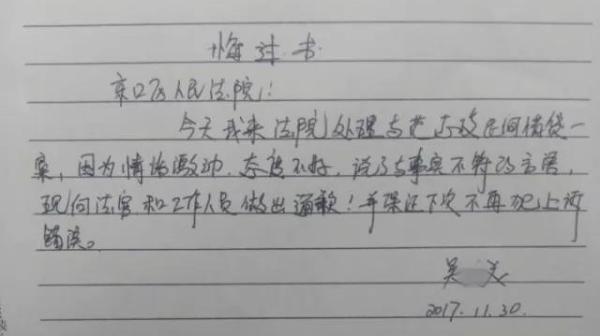 悔过书
京口区人民法院:
今天我来法院处理与范 民间借贷一
案,因为情绪激动,态度不好,说了与事实不符的言语,
现向法官和工作人员做出道歉!并保证下次不再犯上诉
错误。
吴 美
2017.11.30.